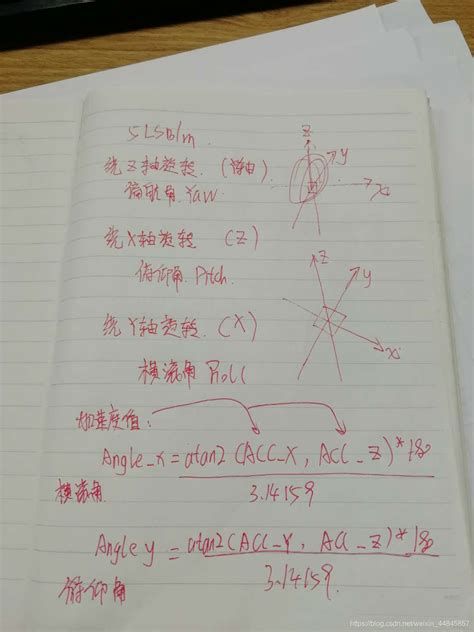 5LSB/m
绕Z轴旋转. (自由).
偏航角. Yaw
绕X轴旋转 (Z)
俯仰角. Pitch
绕Y轴旋转. (X)
横滚角 Roll
Z
Y
X
Z
Y
X
加速度值:
Angle_x = atan2(ACC_X, ACC_Z)*180
3.14159
横滚角
Angle y = atan2(ACC_Y, ACC_Z)*180
3.14159.
俯仰角
https://blog.csdn.net/weixin_44845857